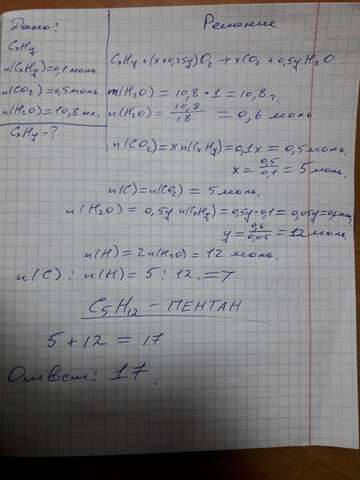 Дано:
CxHy
n(CxHy)=0,1 моль
n(CO2)=0,5 моль
n(H2O)=10,8 мл.
CxHy - ?
Решение
CxHy+(x+0,25y)O2→xCO2+0,5yH2O
m(H2O)=10,8·1=10,8г.
n(H2O)=10,8/18=0,6 моль
n(CO2)=x n(CxHy)=0,1x=0,5моль.
x=0,5/0,1=5моль.
n(C)=n(CO2)=5моль.
n(H2O)=0,5y·n(CxHy)=0,5y·0,1=0,05y=
y=0,6/0,05=12моль.
n(H)=2n(H2O)=12 моль.
n(C):n(H)=5:12.=7
C5H12 - ПЕНТАН
5+12=17
Ответ: 17.